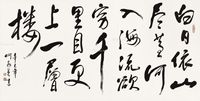 白日依山
尽黄河
入海流欲
穷千
里目更
上一層
楼